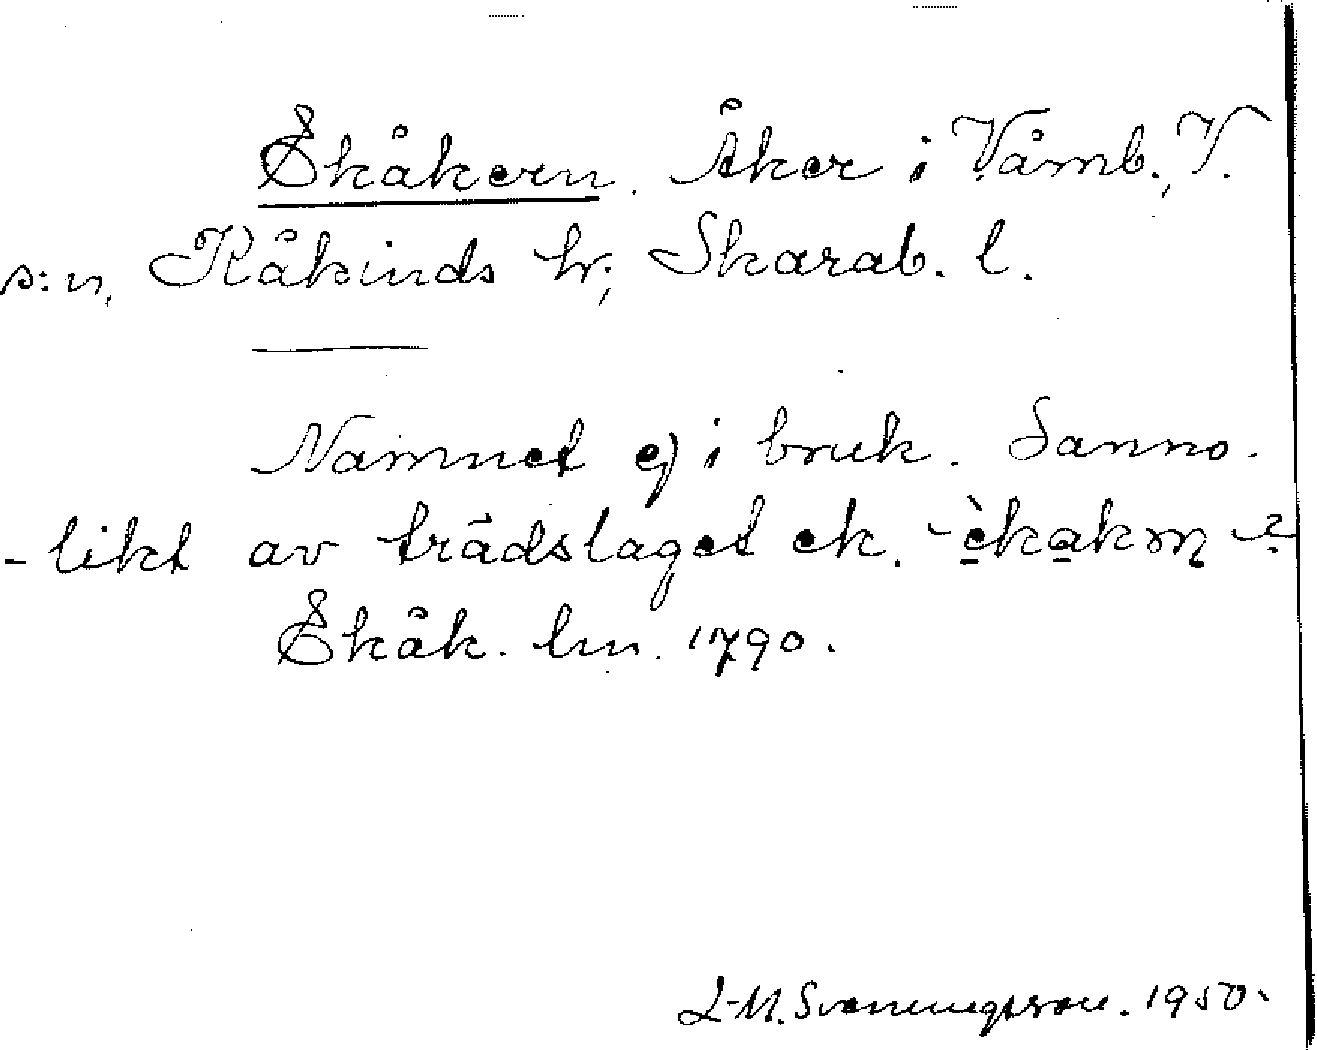 Ekåkern. Åker i Våmb, V.
s:n, Kåkinds hr, Skarab. l.
Namnet ej i bruk. Sanno-
-likt av trädslaget ek. -
Ekåk. lm. 1790.
L-M. Svenungsson. 1950.